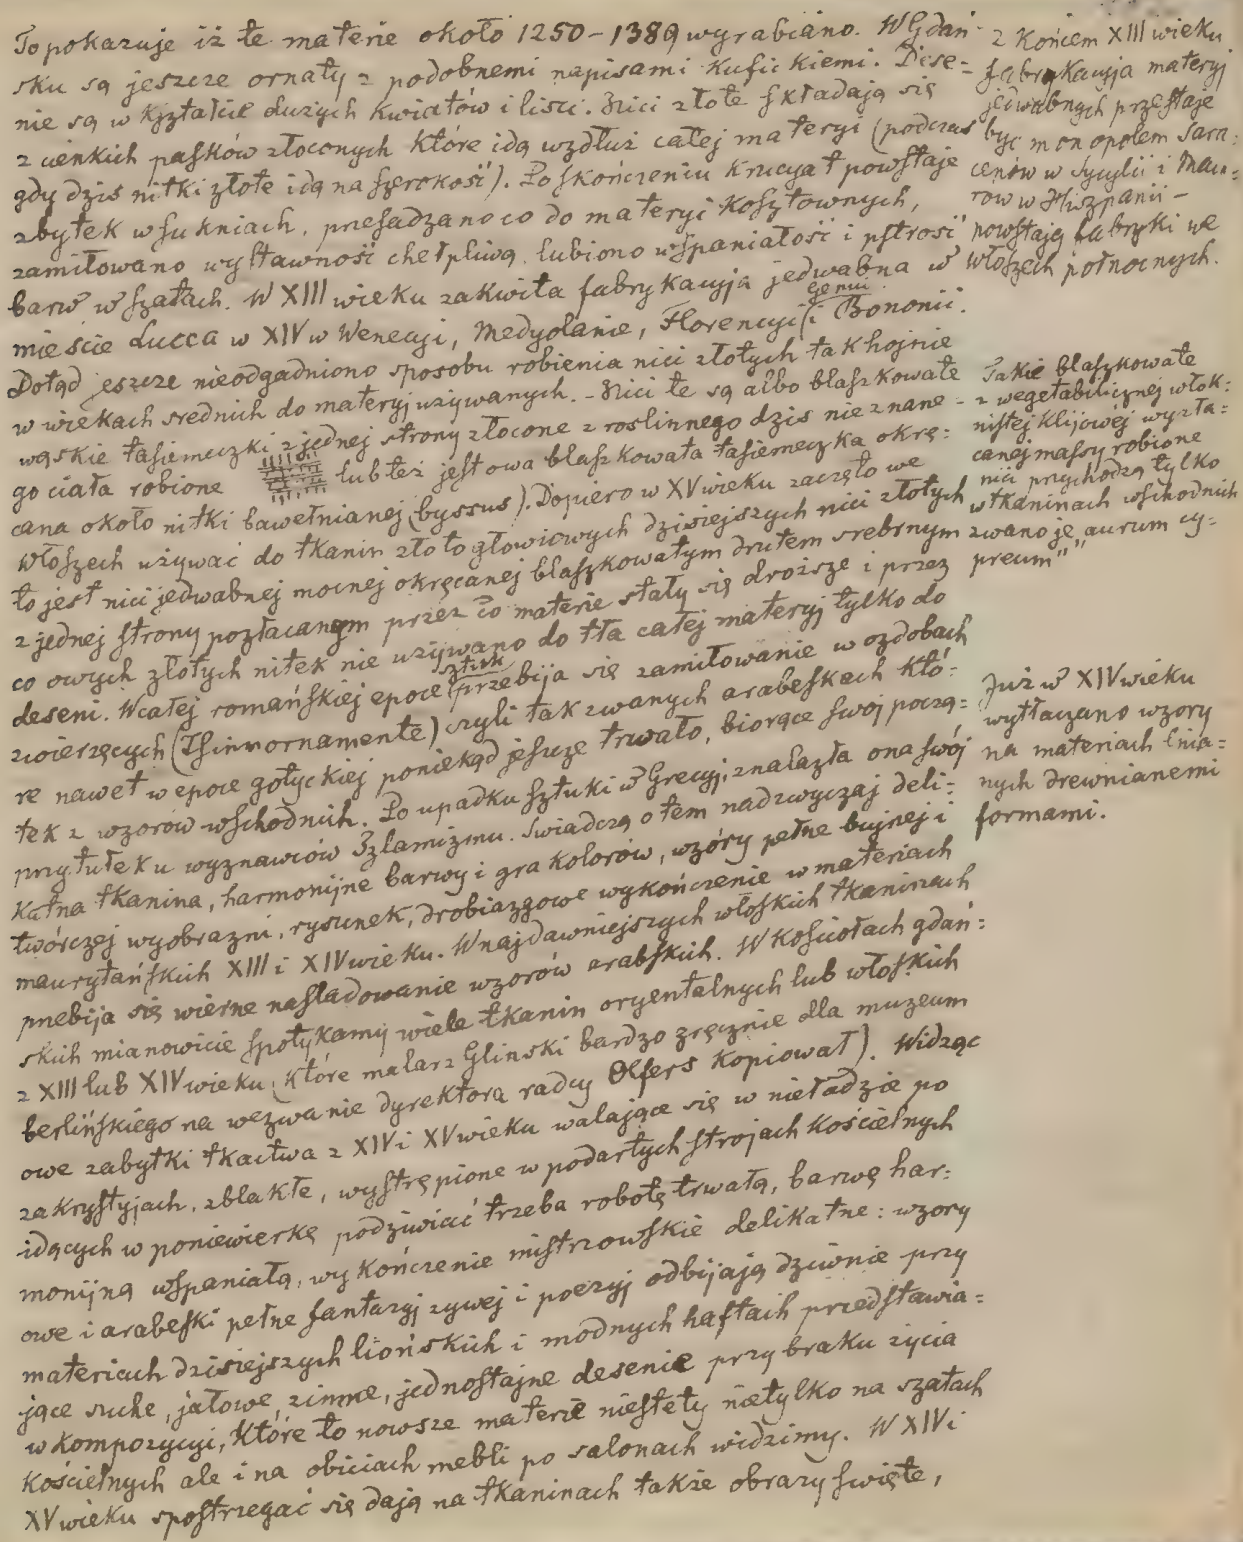 To pokazuje iż te materie około 1250-1389 wyrabiano. W Gdań-
sku są jeszcze ornaty z podobnemi napisami Kufickiemi. Dese=
nie są w Kształcie dużych Kwiatów i lisci. Nici złote składają się
z cienkich pasków złoconych które idą wzdłuż całej materyi (podczas
gdy dzis nitki złote idą na szerokość). Po skończeniu Krucyat powstaje
zbytek w sukniach, przesadzano co do materyi Kosztownych,
zamiłowano wystawność chełpliwą, lubiono wspaniałość i pstrość
barw w szatach. W XIII wieku zakwita fabrykacyja jedwabna w
mieście Lucca w XIV w Wenecyi, Medyolanie, Florencyi (i Bononii.
Genui
Dotąd jeszcze nieodgadniono sposobu robienia nici złotych tak hojnie
w wiekach srednich do materyj używanych. - Nici te są albo blaszkowate
wąskie tasiemeczki z jednej strony złocone z roslinnego dzis nieznane-
go ciała robione lub też jest owa blaszkowata tasiemeczka okrę=
cana około nitki bawełnianej (byssus). Dopiero w XV wieku zaczęto we
Włoszech używać do tkanin złotogłowiowych dzisiejszych nici złotych
to jest nici jedwabnej mocnej okręcanej blaszkowatym drutem srebrnym
z jednej strony pozłacanym przez co materie stały się droższe i przez
co owych złotych nitek nie używano do tła całej materyj tylko do
deseni. W całej romańskiej epoce (przebija się zamiłowanie w ozdobach
sztuk
zwierzęcych (Thierornamente) czyli tak zwanych arabeskach Któ=
re nawet w epoce gotyckiej poniekąd jeszcze trwało, biorące swój począ=
tek z wzorów wschodnich. Po upadku sztuki w Grecyj, znalazła ona swój
przytułek u wyznawców Izlamizmu. Swiadczą o tem nadzwyczaj deli=
katna tkanina, harmonijne barwy i gra kolorów, wzóry pełne bujnej i
twórczej wyobrazni, rysunek, drobiazgowe wykończenie w materiach
maurytańskich XIII i XIV wieku. W najdawniejszych włoskich tkaninach
przebija się wierne nasladowanie wzorów arabskich. W Kościołach gdań=
skich mianowicie spotykamy wiele tkanin oryentalnych lub włoskich
z XIII lub XIV wieku (Które malarz Glinski bardzo zręcznie dla muzeum
berlińskiego na wezwanie dyrektora radcy Olfers Kopiował). Widząc
owe zabytki tkactwa z XIV i XV wieku walające się w nieładzie po
zakrystyjach, zblakłe, wystrępione w podartych strojach Kościelnych
idących w poniewierkę podziwiać trzeba robotę trwałą, barwę har=
monijną wspaniałą, wykończenie mistrzowskie delikatne: wzory
owe i arabeski pełne fantazyj zywej i poezyj odbijają dziwnie przy
materiach dzisiejszych liońskich i modnych haftach przedstawia=
jące suche, jałowe, zimne, jednostajne desenie przy braku życia
w Kompozycyi, Które to nowsze materie niestety nietylko na szatach
Kościelnych ale i na obiciach mebli po salonach widzimy. W XIV i
XV wieku spostrzegać się dają na tkaninach także obrazy święte,
z Końcem XIII wieku
fabrykacyja materyj
jedwabnych przestaje
być monopolem Sara=
cenów w Sycylii i Mau=
rów w Hiszpanii -
powstają fabryki we
Włoszech północnych.
Takie blaszkowate
z wegetabilicznej włok=
nistej klijowej wyzła=
canej massy robione
nici przychodzą tylko
w tkaninach wschodnich
zwano je „aurum cy=
preum"
Już w XIV wieku
wytłaczano wzory
na materiach lnia=
nych drewnianemi
formami.